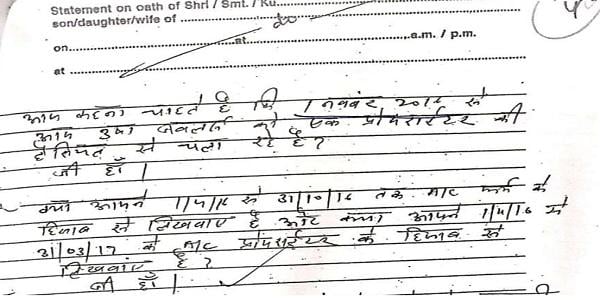 Statement on oath of Shri / Smt. / Ku.
son/daughter/wife of
on at a.m. / p.m.
at
आप कहना चाहते है कि 1 नवंबर 2016 से
आप उषा ज्वेलर्स को एक प्रोपराईटर की
हैसियत से चला रहे है?
जी हाँ।
क्या आपने 1/4/16 से 31/10/16 तक A/c फर्म के
हिसाब से लिखवाए है और क्या आपने 1/4/16 से
31/03/17 के A/c प्रोपराईटर के हिसाब से
लिखवाए है?
जी हाँ।